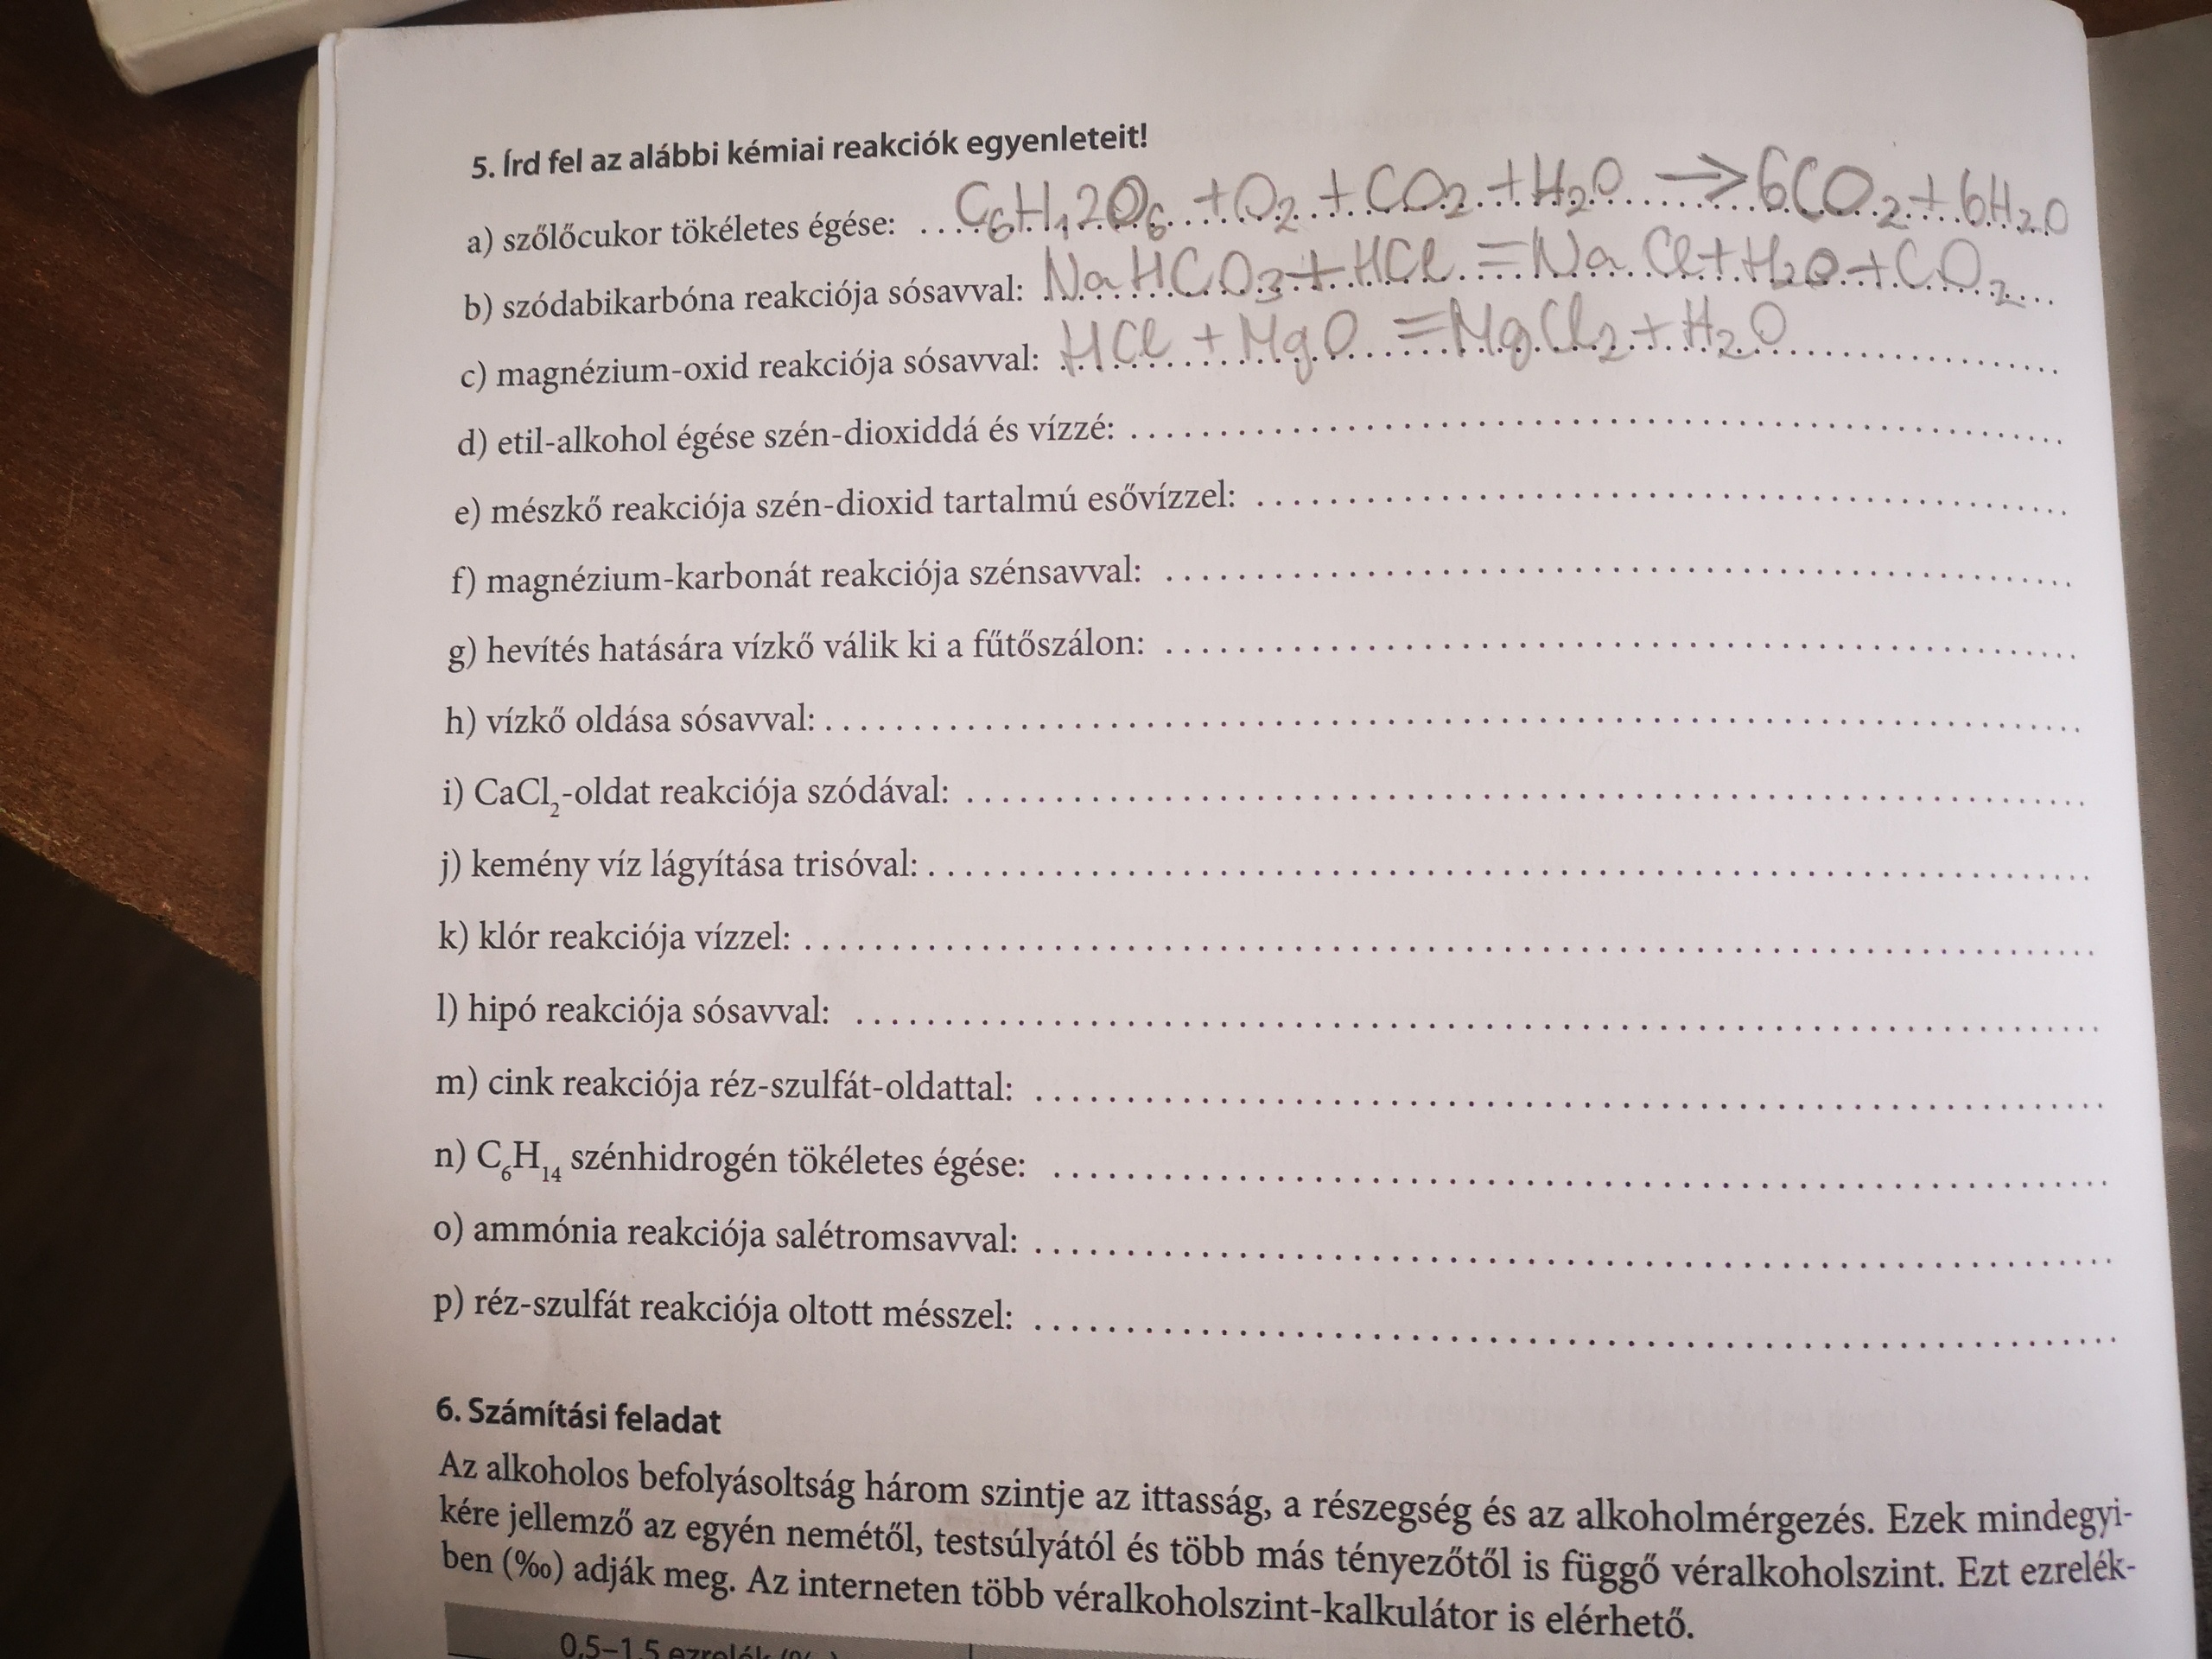 5. Írd fel az alábbi kémiai reakciók egyenleteit!
a) szőlőcukor tökéletes égése: C₆H₁2O₆ + O₂ + CO₂ + H₂O → 6CO₂ + 6H₂O
b) szódabikarbóna reakciója sósavval: NaHCO₃ + HCl = NaCl + H₂O + CO₂
c) magnézium-oxid reakciója sósavval: HCl + MgO = MgCl₂ + H₂O
d) etil-alkohol égése szén-dioxiddá és vízzé:
e) mészkő reakciója szén-dioxid tartalmú esővízzel:
f) magnézium-karbonát reakciója szénsavval:
g) hevítés hatására vízkő válik ki a fűtőszálon:
h) vízkő oldása sósavval:
i) CaCl₂-oldat reakciója szódával:
j) kemény víz lágyítása trisóval:
k) klór reakciója vízzel:
l) hipó reakciója sósavval:
m) cink reakciója réz-szulfát-oldattal:
n) C₆H₁₄ szénhidrogén tökéletes égése:
o) ammónia reakciója salétromsavval:
p) réz-szulfát reakciója oltott mésszel:
6. Számítási feladat
Az alkoholos befolyásoltság három szintje az ittasság, a részegség és az alkoholmérgezés. Ezek mindegyi-
kére jellemző az egyén nemétől, testsúlyától és több más tényezőtől is függő véralkoholszint. Ezt ezrelék-
ben (‰) adják meg. Az interneten több véralkoholszint-kalkulátor is elérhető.
0,5–1,5 ezrelék (‰)